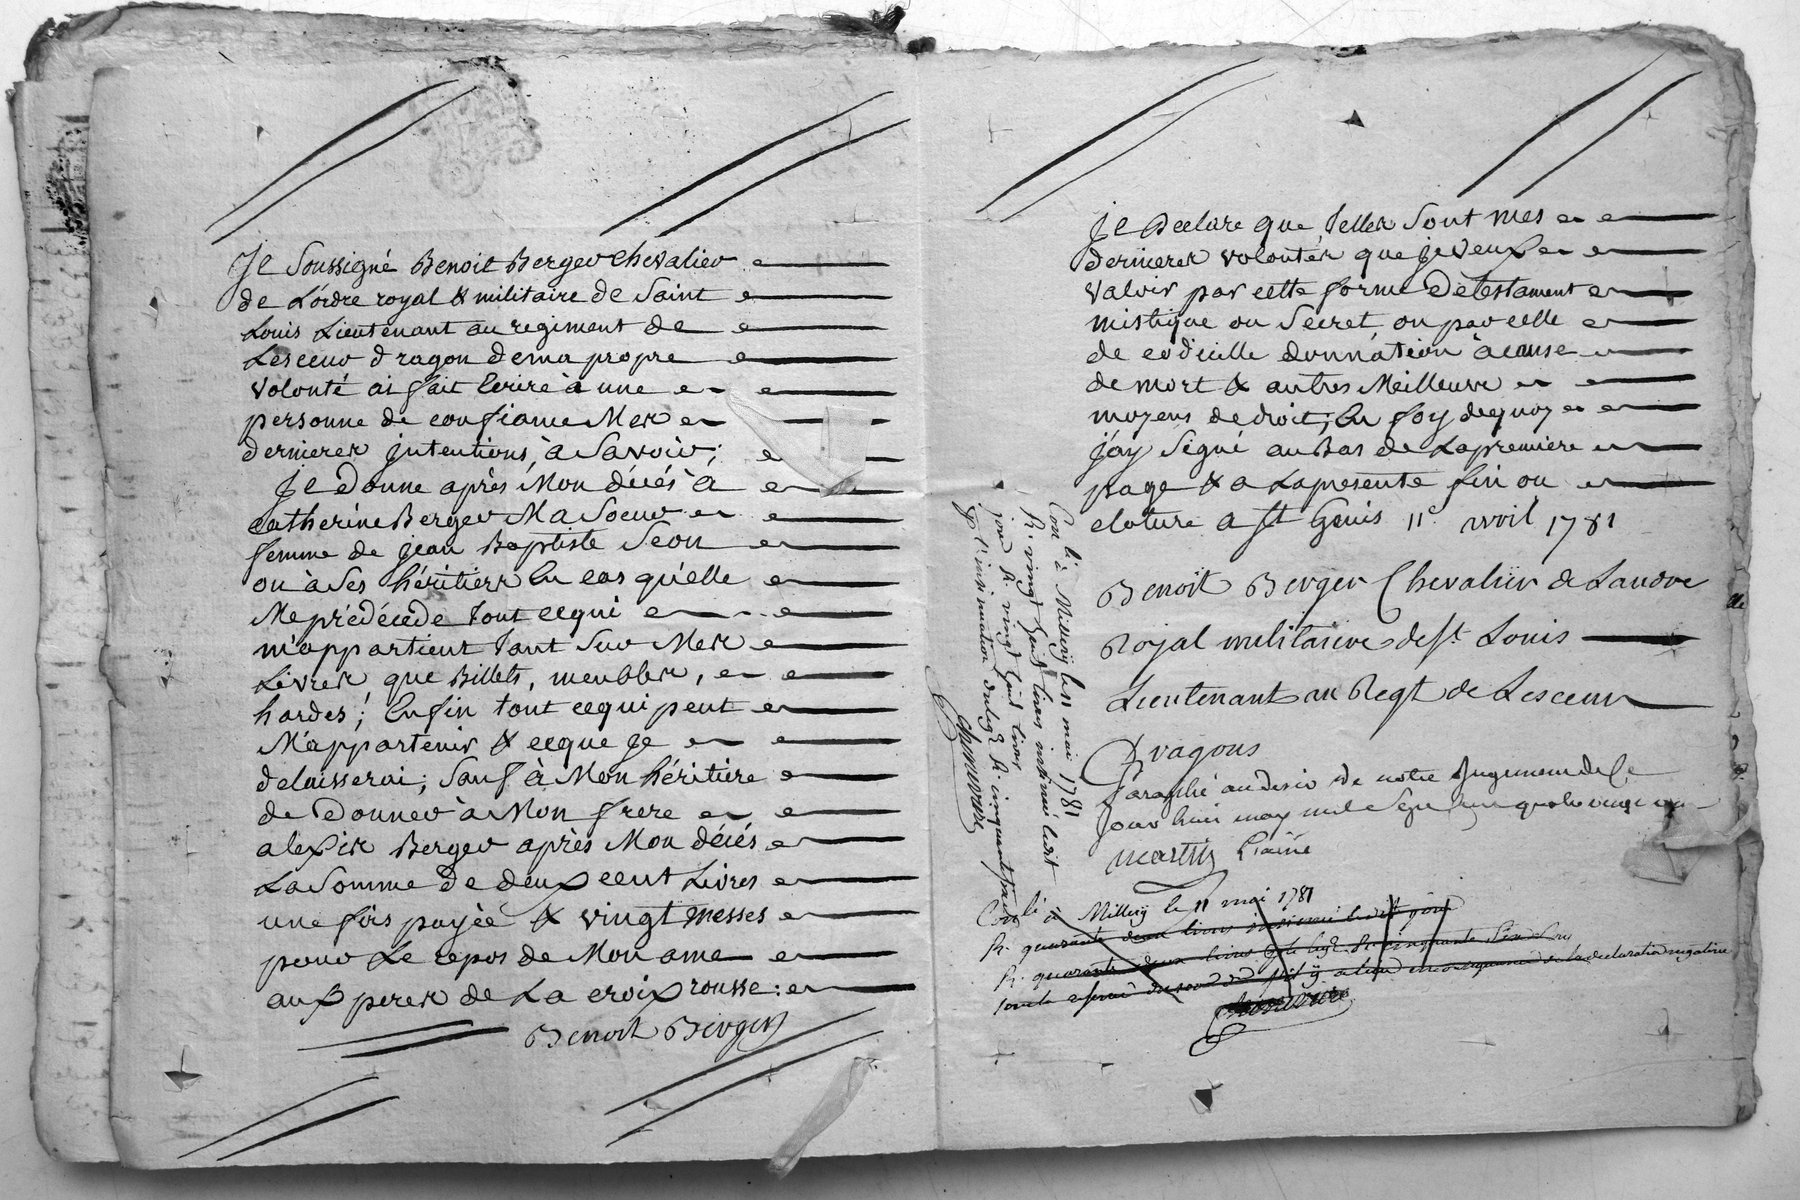 Je Soussigné Benoit Berger Chevalier
de L'órdre royal & militaire de Saint
Louis Lieutenant au regiment de
Lesceur dragon de ma propre
volonté ai fait Ecrire à une
personne de confiance Mes
dernieres intentions, à Savoir;
Je Donne après Mon décés à
catherine Berger Ma Soeur
femme de jean Baptiste Seon
ou à Ses héritiers En cas qu'elle
Me prédécéde tout cequi
m'appartient tant Sur Mes
Livres que Billets, meubles,
hardes; Enfin tout cequi peut
M'appartenir & ceque je
delaisserai; Sauf à Mon héritiére
de Donner à Mon frere
alexis Berger après Mon décés
La Somme de deux cent Livres
une fois payéé & vingt messes
pour Le repos de Mon ame
aux peres de La croix rousse:
Benoit Berger
Je Declare que telles Sont mes
dernieres volontés que je veux
valoir par cette forme De testament
mistique ou Secret, ou par celle
de codicille donnation à cause
de mort & autres Meilleurs
moyens de droit; En foy dequoy
j'ay Signé au Bas de La premiere
page & a La presente fin ou
cloture a St Genis 11e avril 1781
Benoit Berger Chevalier de Laudre
Royal militaire de St Louis
Lieutenant au Regt de Lesceur
Dragons
Paraphé au desir de notre Jugement de Ce
Jour huit may mil Sept Cent quatre vingt un
martin L'ainé
Con lé à Millery le 11 mai 1781
R. vingt huit livres
jour R. vingt huit livres
Con lé à Millery le 11 mai 1781
R. quarante deux livres
R. quarante deux livres